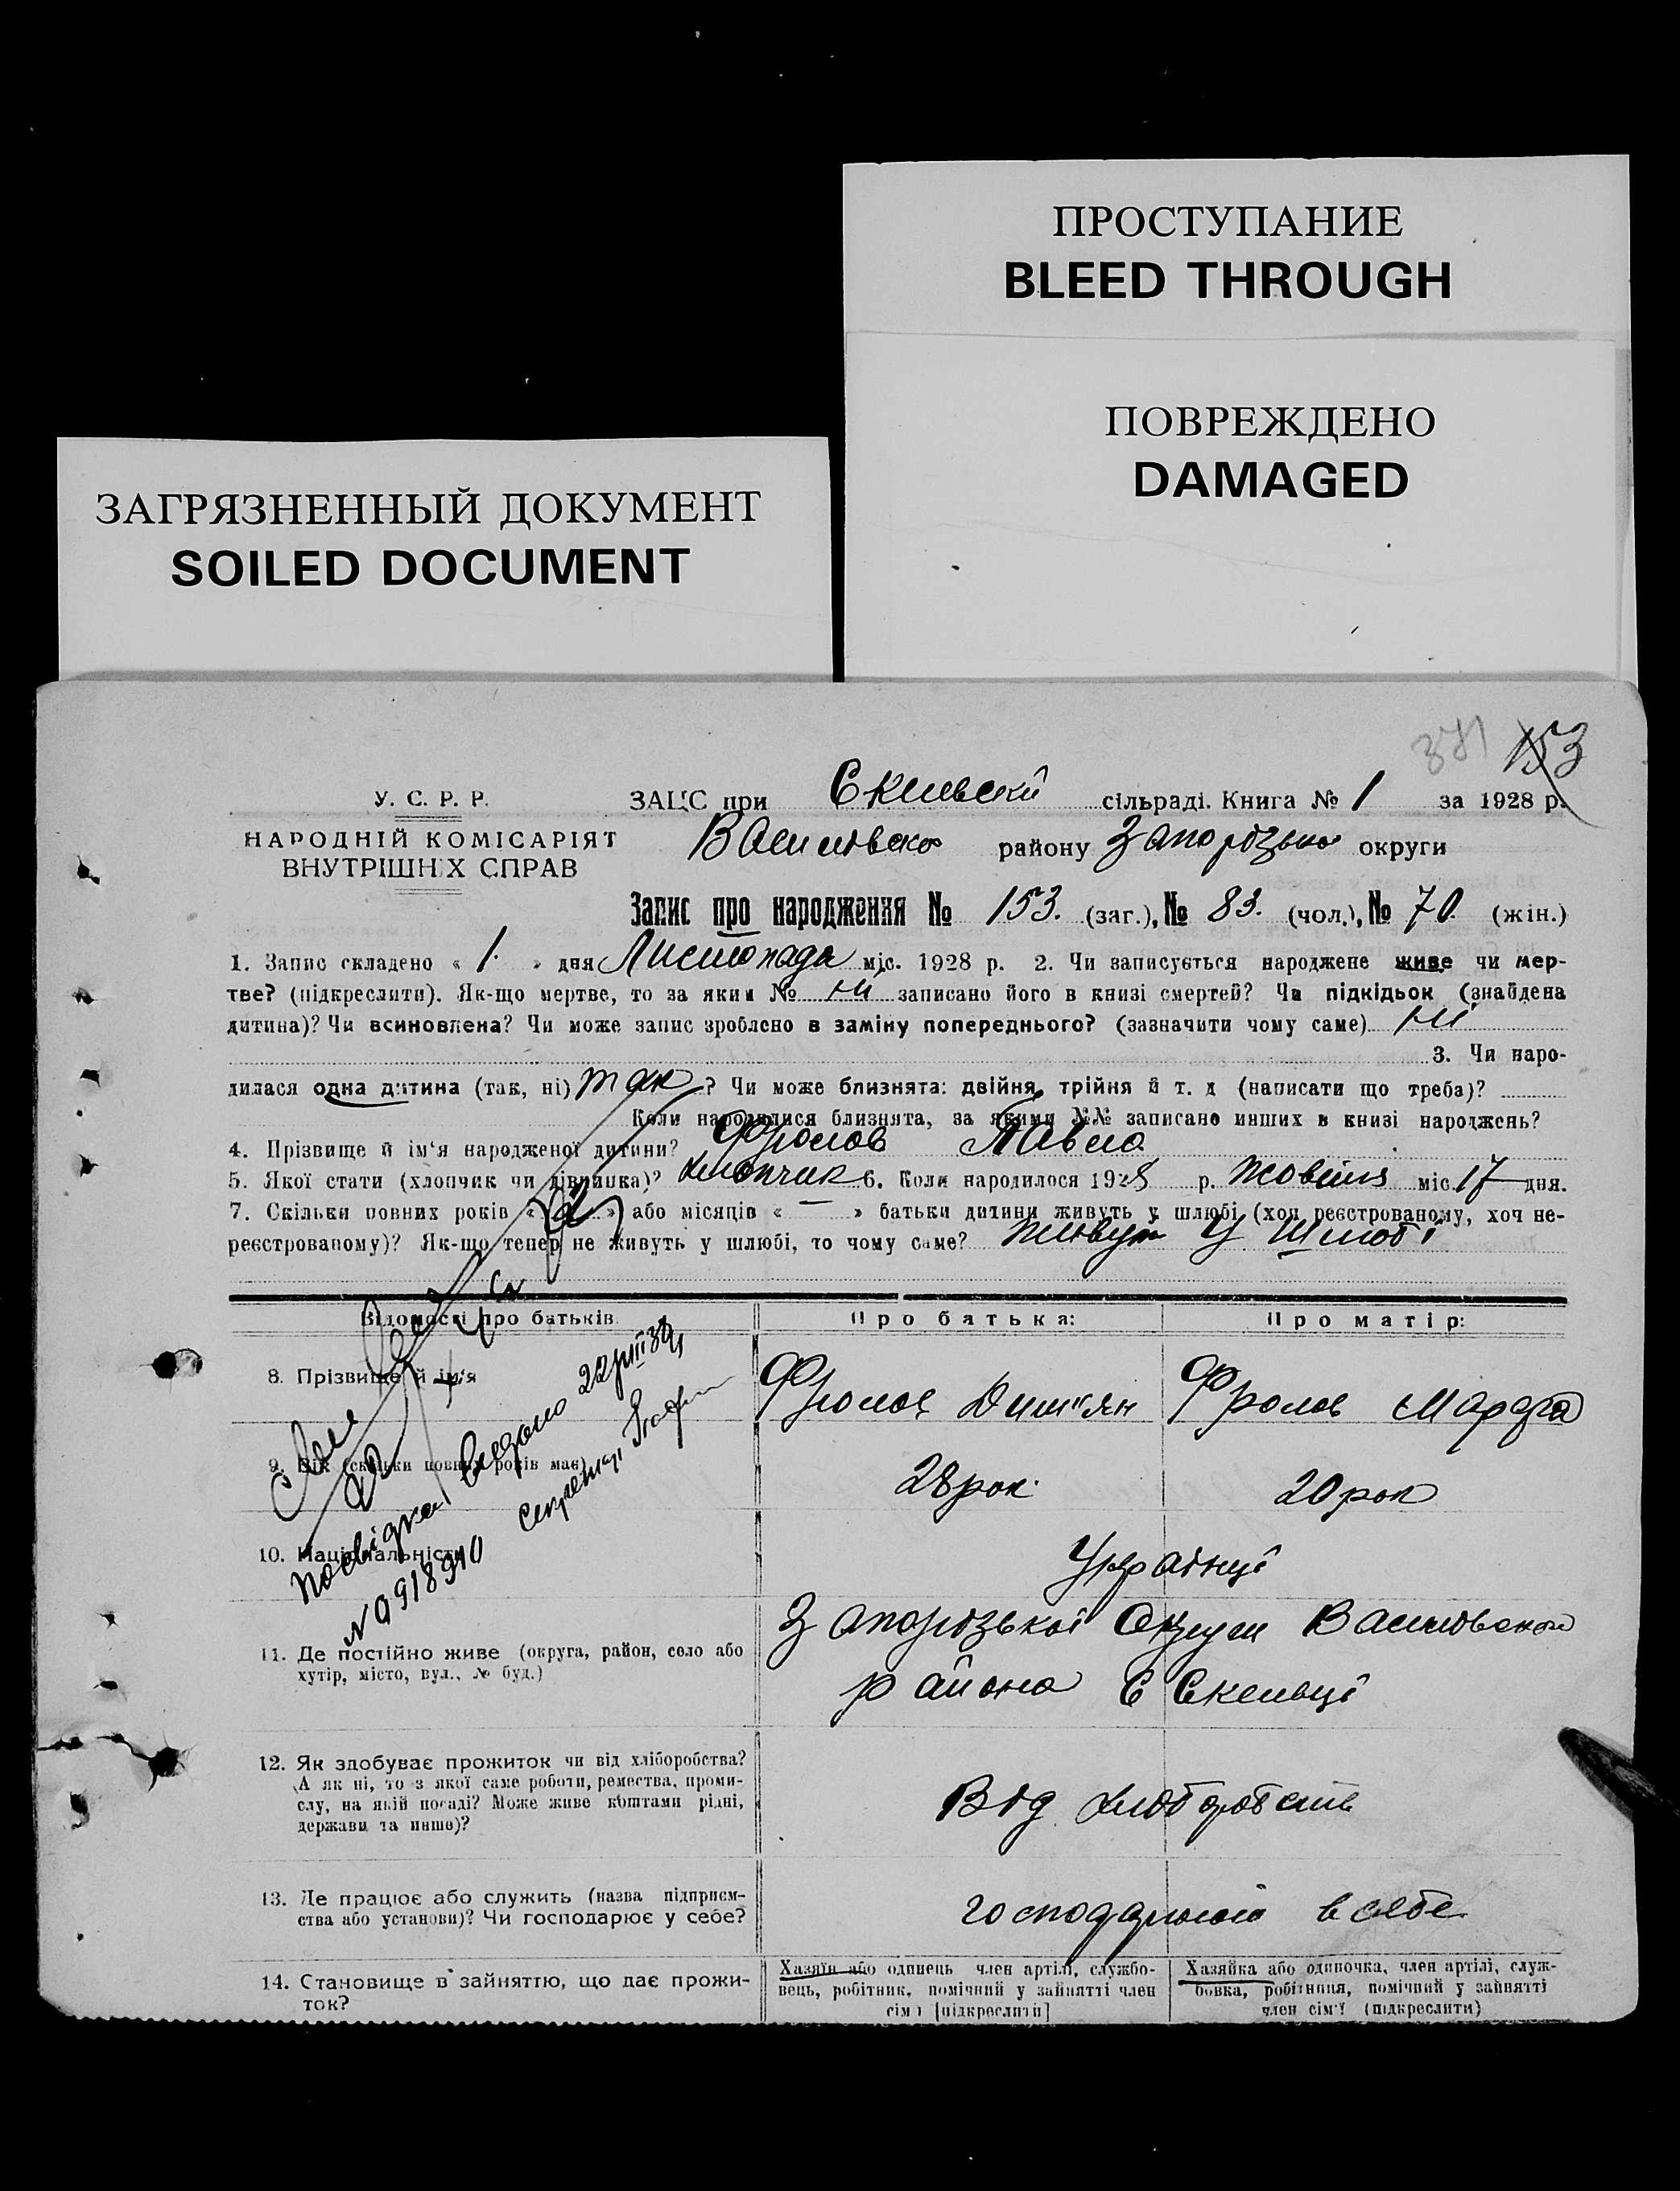 ПРОСТУПАНИЕ
BLEED THROUGH
ПОВРЕЖДЕНО
DAMAGED
ЗАГРЯЗНЕННЫЙ ДОКУМЕНТ
SOILED DOCUMENT
371 153
У. С. Р. Р.
НАРОДНІЙ КОМІСАРІЯТ
ВНУТРІШНІХ СПРАВ
ЗАЦС при Скельскі сільраді. Книга № 1 за 1928 р.
Василівсько району Запорізько округи
Запис про народження № 153. (заг.), № 83. (чол.), № 70. (жін.)
1. Запис складено « 1. » дня Листопада міс. 1928 р. 2. Чи записується народжене живе чи мер-
тве? (підкреслити). Як-що мертве, то за яким № ні записано його в книзі смертей? Чи підкідьок (знайдена
дитина)? Чи всиновлена? Чи може запис зроблено в заміну попереднього? (зазначити чому саме) ні
3. Чи наро-
дилася одна дитина (так, ні) так? Чи може близнята: двійня, трійня й т. д (написати що треба)?
Коли народилися близнята, за якими №№ записано инших в книзі народжень?
4. Прізвище й ім'я народженої дитини? Фролов Павло
5. Якої стати (хлопчик чи дівчинка)? хлопчик 6. Коли народилося 1928 р. Жовтня міс. 17 дня.
7. Скільки повних років « » або місяців « — » батьки дитини живуть у шлюбі (хоч реєстрованому, хоч не-
реєстрованому)? Як-що тепер не живуть у шлюбі, то чому саме? живуть У Шлюбі
Відомості про батьків. Про батька: Про матір:
8. Прізвище й ім'я Фролов Дим'ян Фролов Марфа
9. Вік (скільки повних років має) 28 рок. 20 рок
10. Національність Українці
11. Де постійно живе (округа, район, село або
хутір, місто, вул., № буд.)
Запорізької Округи Василівської
района С Скельці
12. Як здобуває прожиток чи від хліборобства?
А як ні, то з якої саме роботи, ремества, проми-
слу, на якій посаді? Може живе коштами рідні,
держави та инше)?
Від хліборобств
13. Де працює або служить (назва підприєм-
ства або установи)? Чи господарює у себе?
в себе
14. Становище в зайняттю, що дає прожи-
ток?
Хазяїн або одинець член артілі, службо-
вець, робітник, помічний у зайнятті член
сім'ї [підкреслити]
Хазяйка або одиночка, член артілі, служ-
бовка, робітниця, помічний у зайнятті
член сім'ї (підкреслити)
Посвідка Видано 22
№ 918910 Секретар